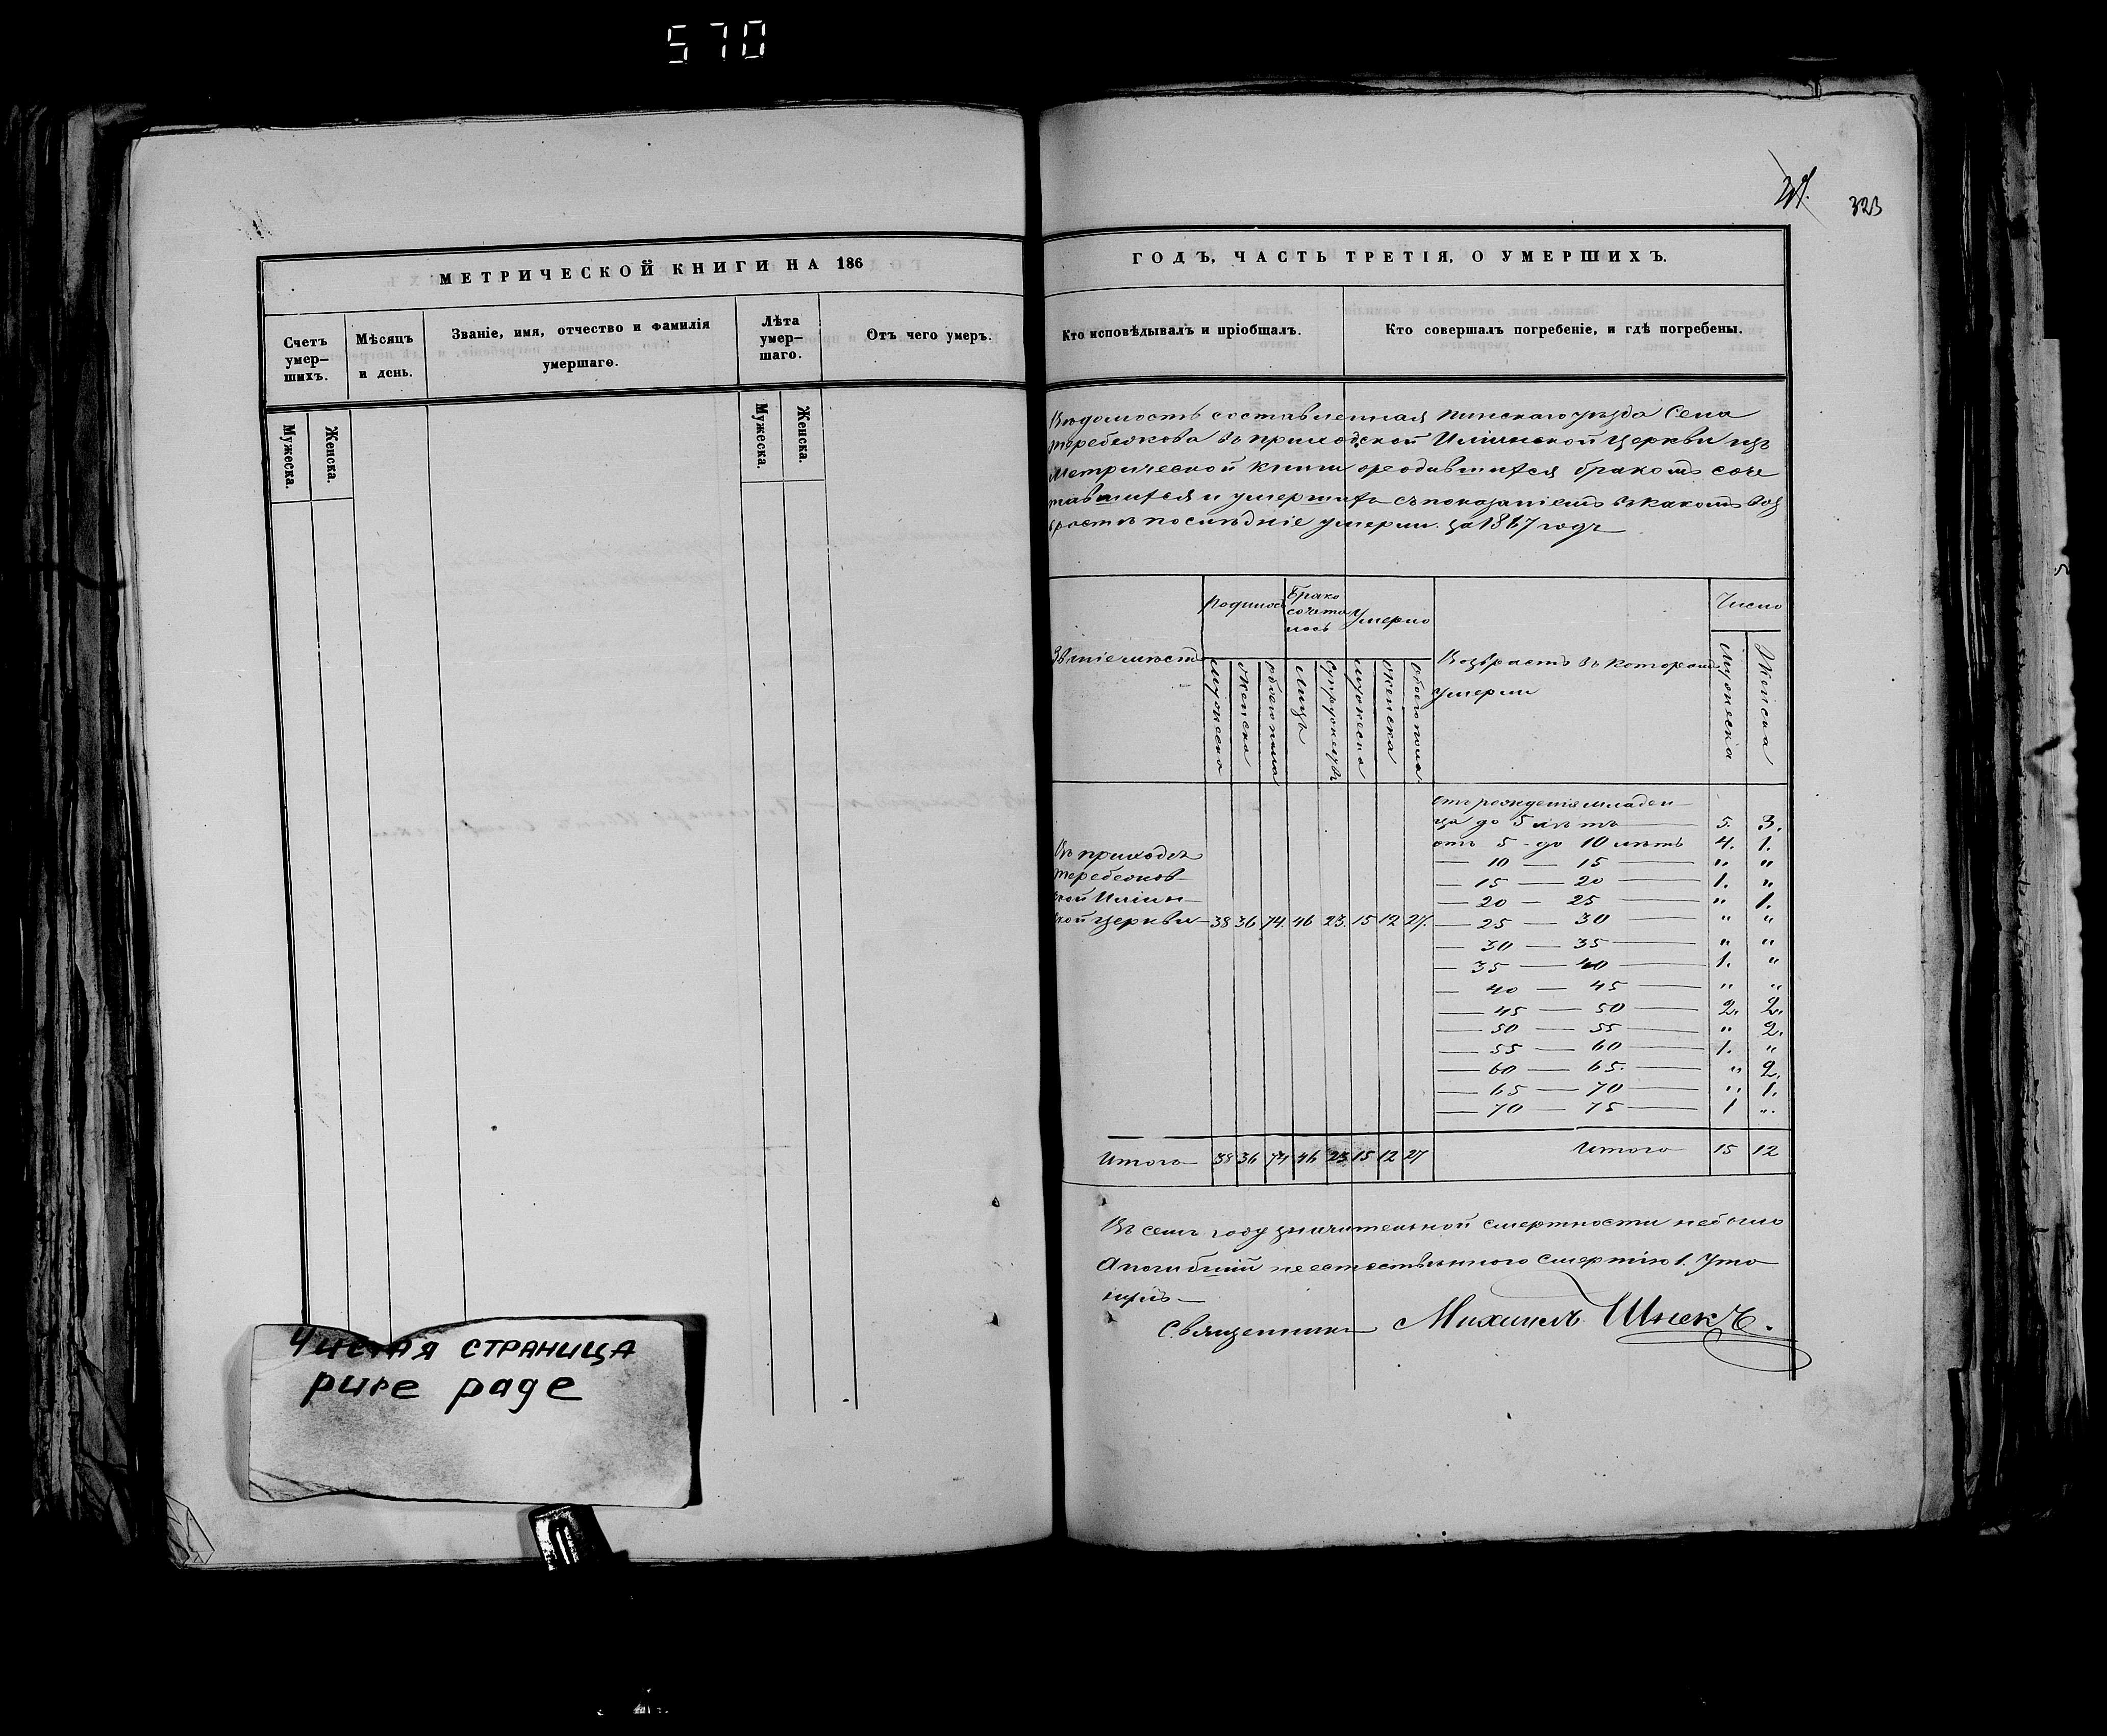 570
МЕТРИЧЕСКОЙ КНИГИ НА 186
Счетъ умер-шихъ.
Мѣсяцъ и день.
Званіе, имя, отчество и фамилія умершаго.
Лѣта умер-шаго.
Отъ чего умеръ.
Мужеска.
Женска.
Мужеска.
Женска.
Чистая страница
pure page
323
ГОДЪ, ЧАСТЬ ТРЕТІЯ, О УМЕРШИХЪ.
Кто исповѣдывалъ и пріобщалъ.
Кто совершалъ погребеніе, и гдѣ погребены.
Вѣдомость составленная Пинскаго уѣзда Села
Теребежова въ приходской Иліинской Церкви изъ
Метрической книги о родившихся бракомъ соче
тавшихся и умершихъ съ показаніемъ въ какомъ воз
растѣ послѣдніе умерли за 1867 годъ
Званіе мѣстъ
Родилось
Брако сочета лось
Умерло
Возврастъ въ которомъ умерли
Число
Мужеска
Женска
обоего пола
Лицъ
Супружествъ
Мужеска
Женска
Обоего пола
Мужеска
Женска
отъ рожденія младен
ца до 5 лѣтъ 5. 3.
отъ 5 до 10 лѣтъ 4. 1.
— 10 — 15 — " "
— 15 — 20 — 1. "
— 20 — 25 — " 1.
— 25 — 30 — " "
— 30 — 35 — " "
— 35 — 40 — 1. "
— 40 — 45 — " "
— 45 — 50 — 2. 2.
— 50 — 55 — " 2.
— 55 — 60 — 1. "
— 60 — 65. — " 2.
— 65 — 70 — " 1.
— 70 — 75 — 1 ".
Въ приходѣ
Теребежов-
ской Иліин-
ской Церкви — 38 36 74. 46 23. 15 12 27.
Итого 38 36 74 46 23 15 12 27 Итого 15 12
Въ семъ году значительной смертности небыло
А погибшій неестественною смертію 1. Уто
нулъ —
Священникъ Михаилъ Шнекъ.